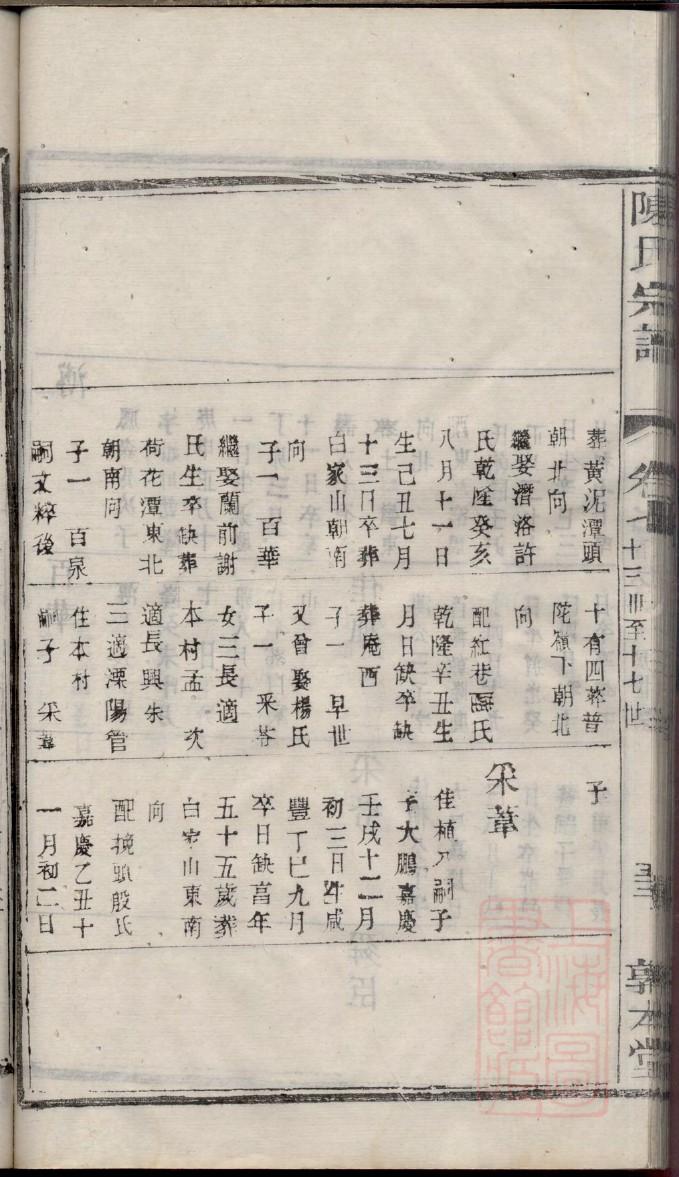 陳氏宗譜
卷七
十三世至十七世
敦本堂
葬黃泥潭頭
朝北向
繼娶潛洛許
氏乾隆癸亥
八月十一日
生己丑七月
十三日卒葬
白家山朝南
向
子一 百華
繼娶蘭前謝
氏生卒缺葬
荷花潭東北
朝南向
子一 百泉
嗣文粹後
十有四葬普
陀嶺下朝北
向
配紅巷臨氏
乾隆辛丑生
月日缺卒缺
葬庵西
子一 早世
又曾娶楊氏
子一 采芩
女三長適
本村孟 次
適長興朱
三適溧陽管
住本村
嗣子 采葦
子
采葦
佳植乃嗣子
子大鵬嘉慶
壬戌十二月
初三日生咸
豐丁巳九月
卒日缺高年
五十五歲葬
白家山東南
向
配挽頭殷氏
嘉慶乙丑十
一月初二日
上海圖書館藏